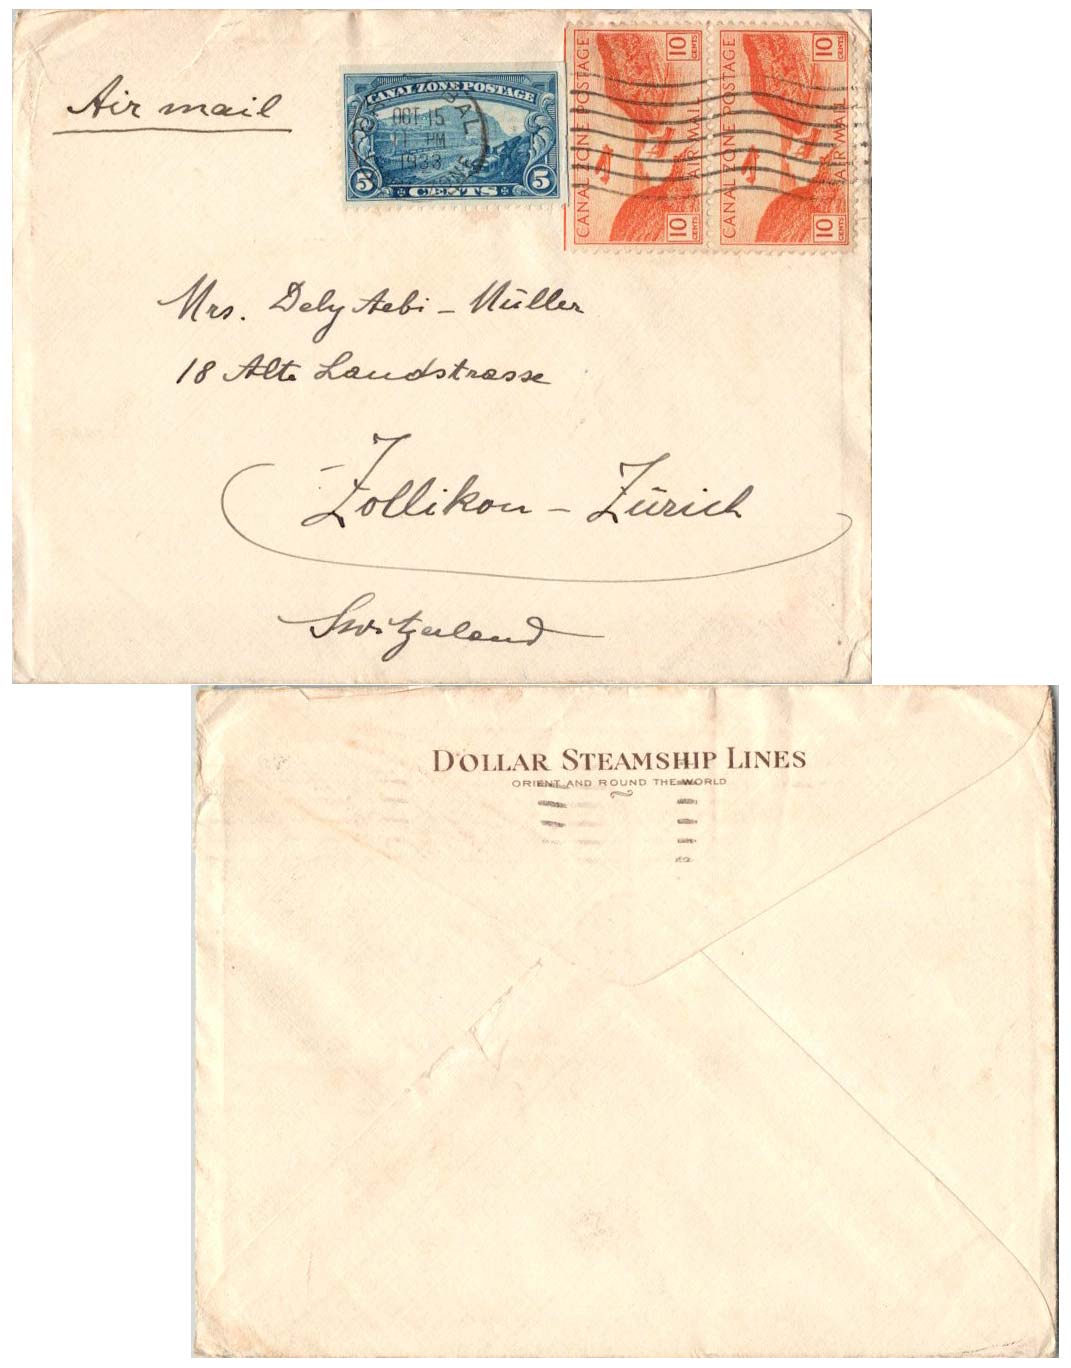 Air mail
CANAL ZONE POSTAGE
OCT 15
11 PM
1933
5 CENTS 5
CANAL ZONE POSTAGE
AIR MAIL
10 CENTS
10 CENTS
CANAL ZONE POSTAGE
AIR MAIL
10 CENTS
10 CENTS
Mrs. Dely Aebi - Müller
18 Alte Landstrasse
Zollikon - Zürich
Switzerland
DOLLAR STEAMSHIP LINES
ORIENT AND ROUND THE WORLD